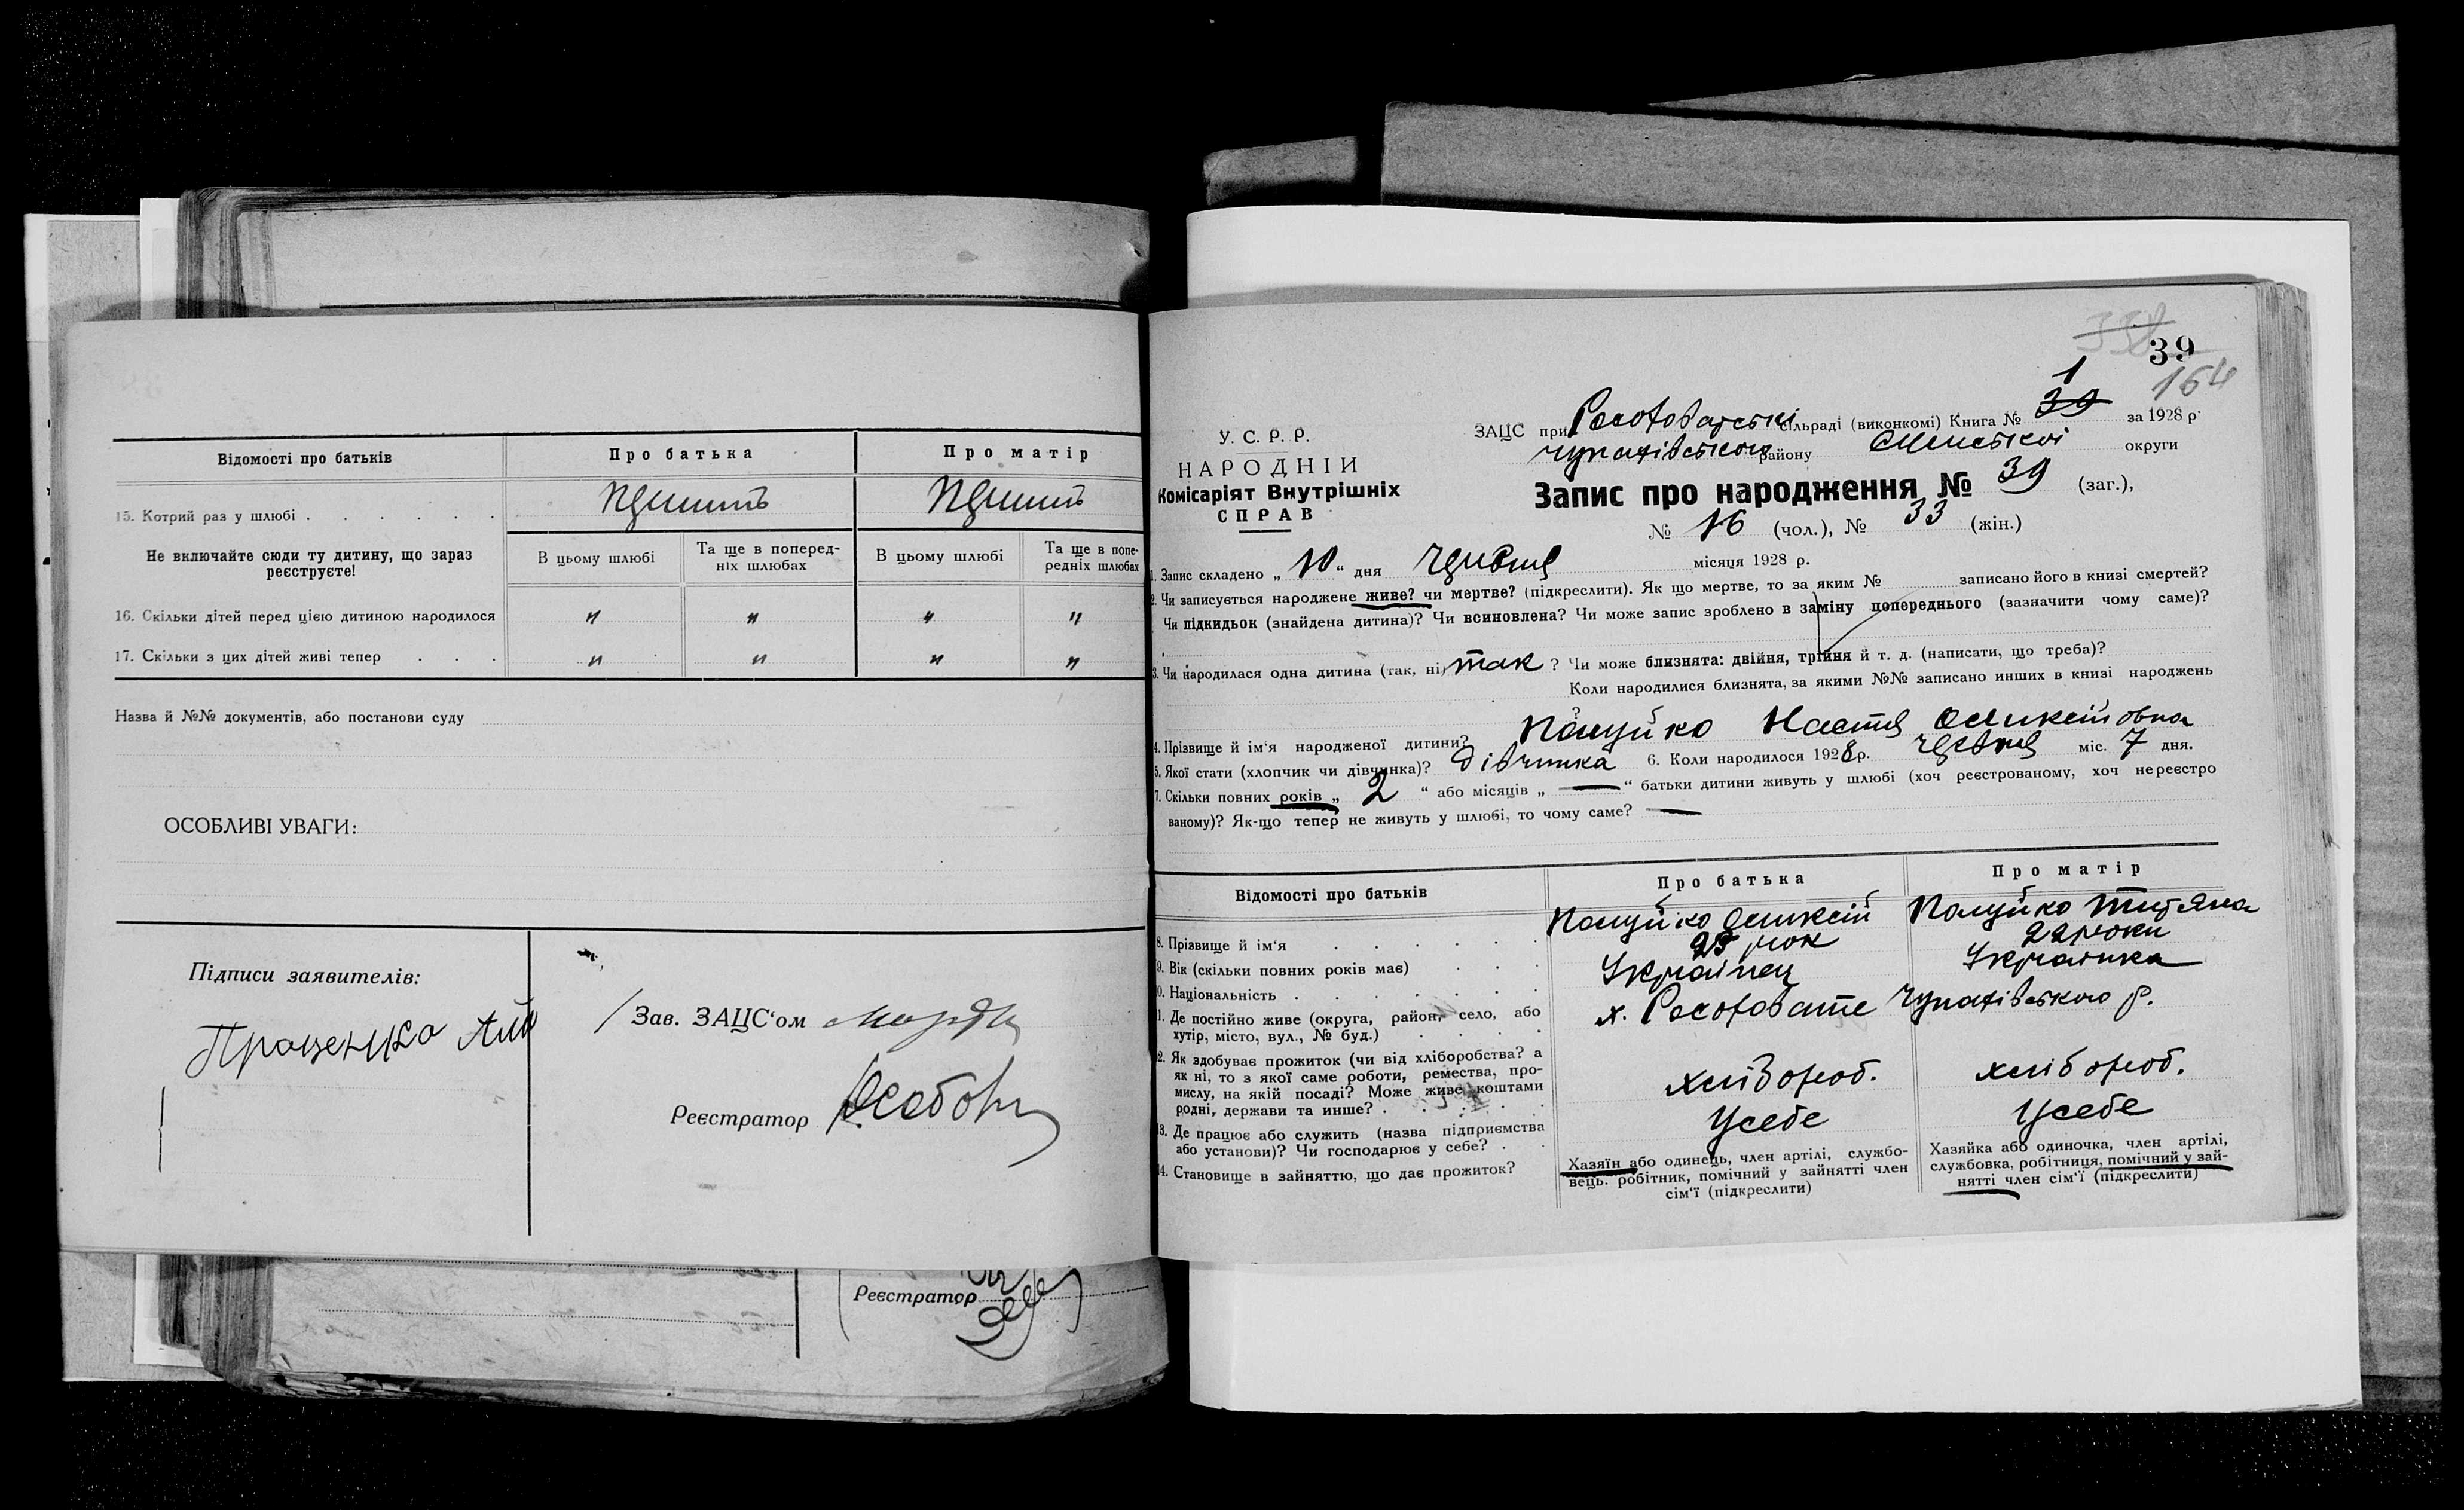 Відомості про батьків
Про батька
Про матір
15. Котрий раз у шлюбі
Не включайте сюди ту дитину, що зараз
реєструєте!
В цьому шлюбі
Та ще в поперед-
ніх шлюбах
В цьому шлюбі
Та ще в попе-
редніх шлюбах
16. Скільки дітей перед цією дитиною народилося " " " "
17. Скільки з цих дітей живі тепер " " " "
Назва й №№ документів, або постанови суду
ОСОБЛИВІ УВАГИ:
Підписи заявителів:
Проценко
Зав. ЗАЦС'ом
Реєстратор
Реєстратор
39
1
164
У. С. Р. Р.
НАРОДНІЙ
Комісаріят Внутрішніх
СПРАВ
ЗАЦС при сільраді (виконкомі) Книга № 39 за 1928 р.
району округи
Запис про народження № 39 (заг.),
№ 16 (чол.), № 33 (жін.)
1. Запис складено „ 10 “ дня Червня місяця 1928 р.
2. Чи записується народжене живе? чи мертве? (підкреслити). Як що мертве, то за яким № записано його в книзі смертей?
Чи підкидьок (знайдена дитина)? Чи всиновлена? Чи може запис зроблено в заміну попереднього (зазначити чому саме)?
3. Чи народилася одна дитина (так, ні) так ? Чи може близнята: двійня, трійня й т. д. (написати, що треба)?
Коли народилися близнята, за якими №№ записано инших в книзі народжень
4. Прізвище й ім'я народженої дитини? Палуйко Настя Оликсіівна
5. Якої стати (хлопчик чи дівчинка)? дівчинка 6. Коли народилося 1928 р. червня міс. 7 дня.
7. Скільки повних років „ 2 “ або місяців „ — “ батьки дитини живуть у шлюбі (хоч реєстрованому, хоч нереєстро
ваному)? Як-що тепер не живуть у шлюбі, то чому саме? —
Відомості про батьків
Про батька
Про матір
8. Прізвище й ім'я Палуйко Оликсій Палуйко Титяна
9. Вік (скільки повних років має) рок 22 роки
10. Національність Українец Українка
11. Де постійно живе (округа, район, село, або
хутір, місто, вул., № буд.)
12. Як здобуває прожиток (чи від хліборобства? а
як ні, то з якої саме роботи, ремества, про-
мислу, на якій посаді? Може живе коштами
родні, держави та инше? хлібороб. хлібороб.
13. Де працює або служить (назва підприємства
або установи)? Чи господарює у себе? Усебе Усебе
14. Становище в зайняттю, що дає прожиток?
Хазяїн або одинець, член артілі, службо-
вець. робітник, помічний у зайнятті член
сім'ї (підкреслити)
Хазяйка або одиночка, член артілі,
службовка, робітниця, помічний у зай-
нятті член сім'ї (підкреслити)